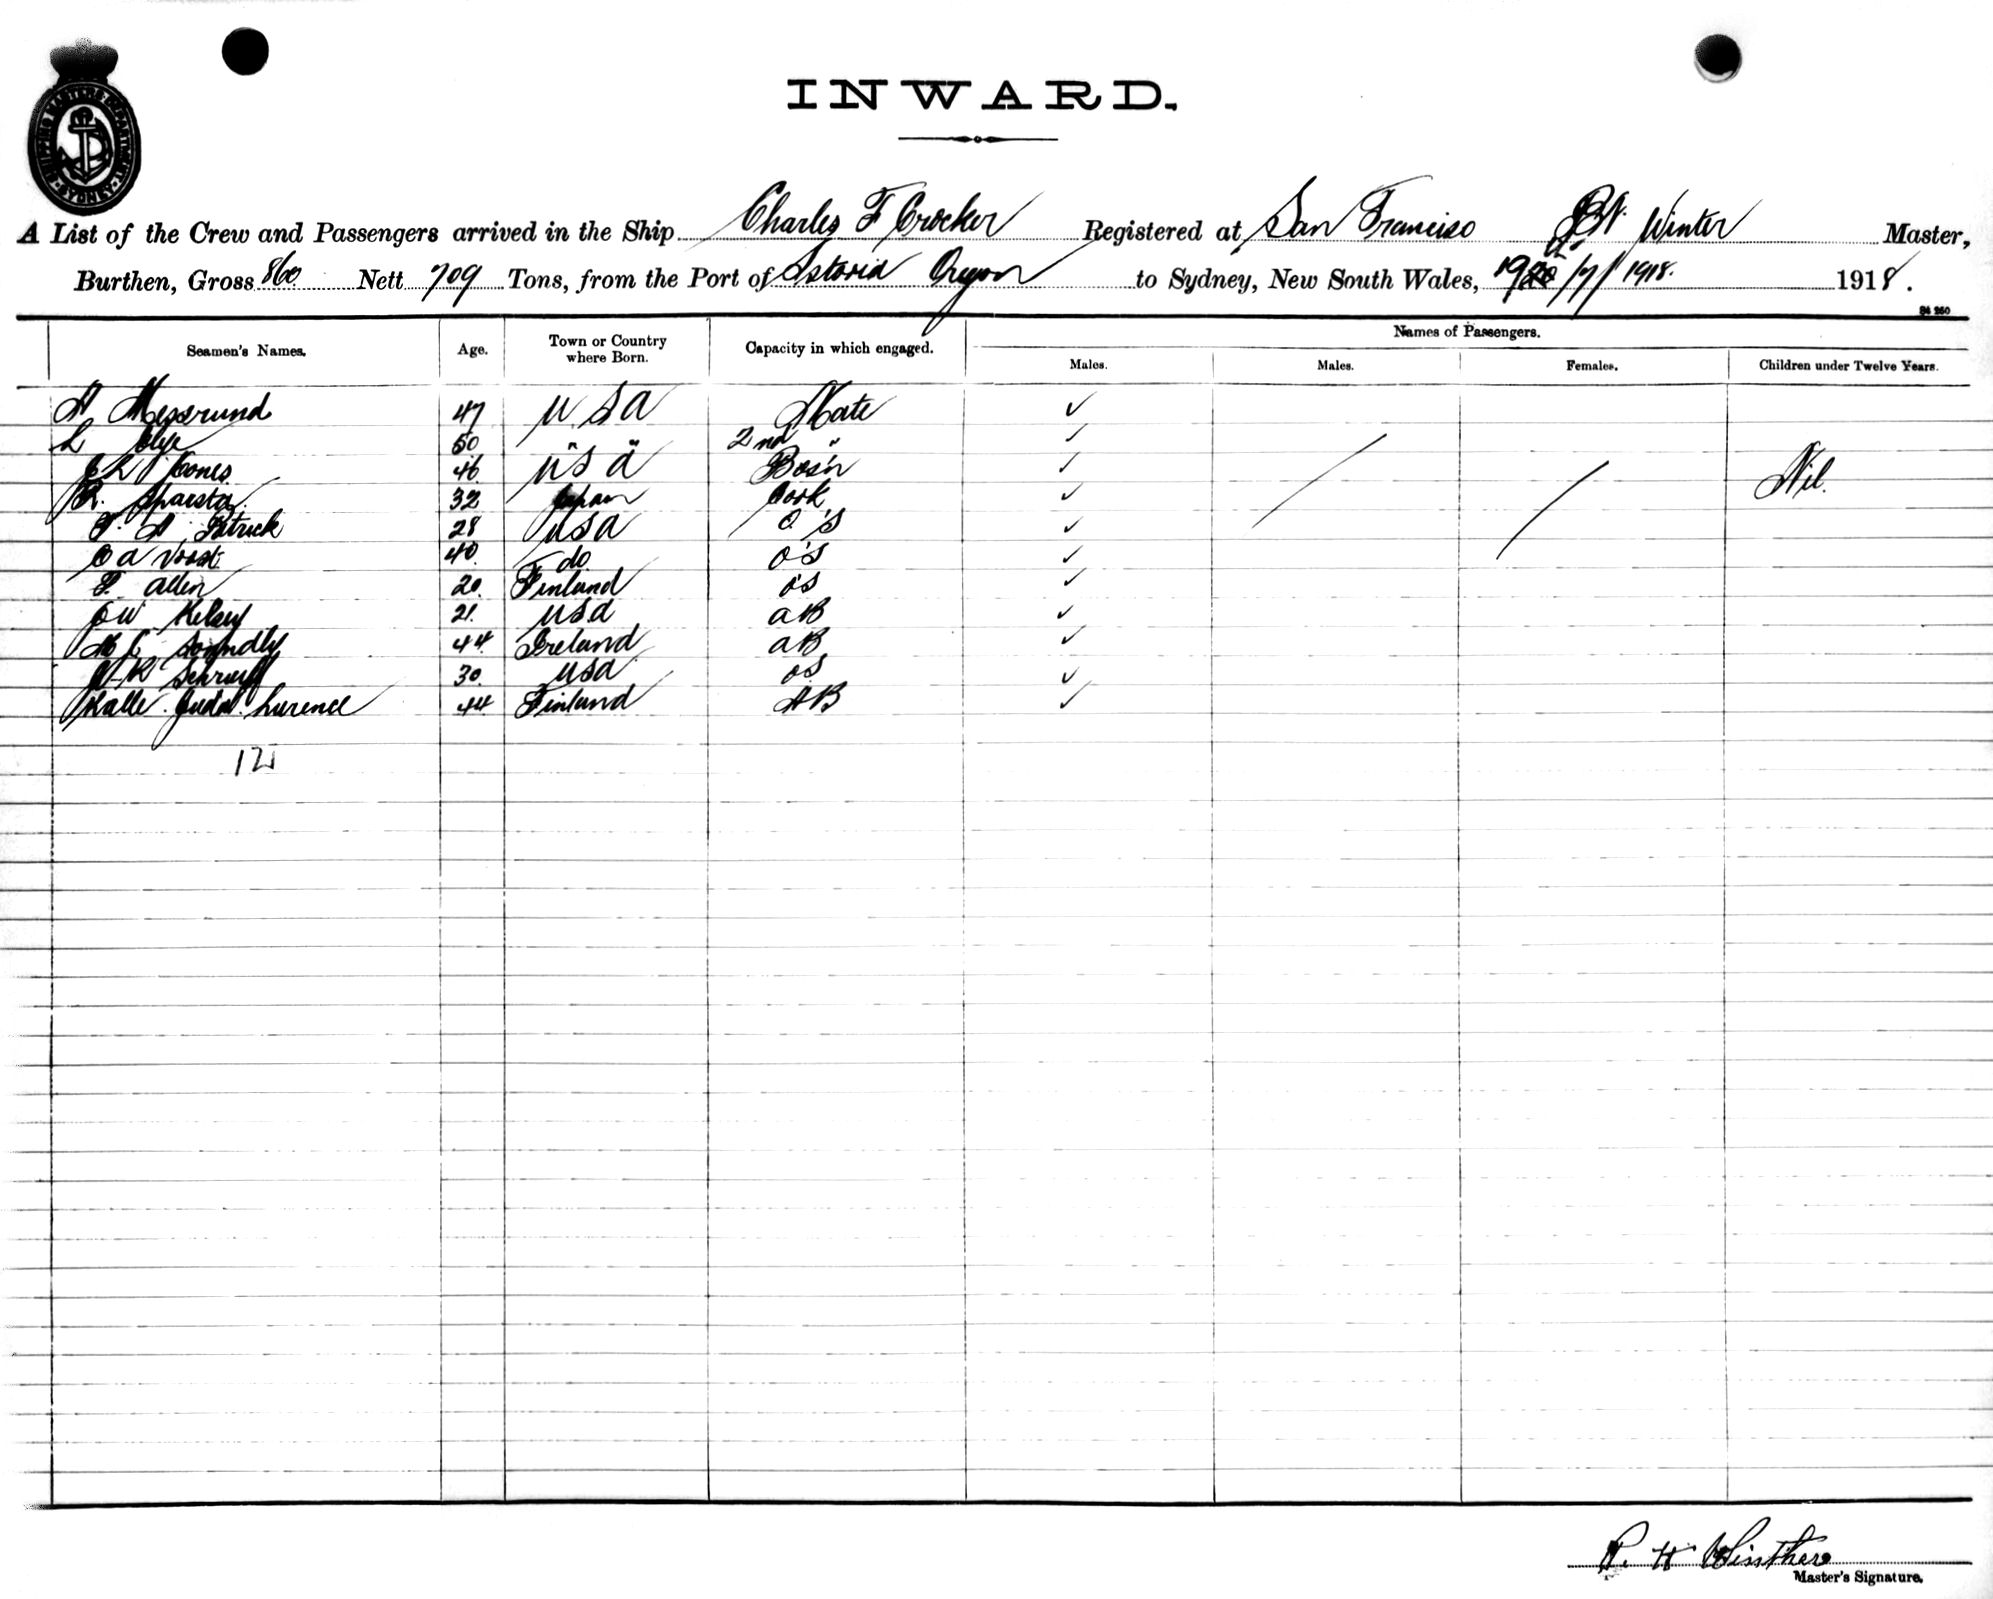 SHIPPING MASTERS DEPARTMENT SYDNEY
INWARD.
A List of the Crew and Passengers arrived in the Ship Charles F Crocker Registered at San Francisco Winter Master,
Burthen, Gross 860 Nett 709 Tons, from the Port of Astoria Oregon to Sydney, New South Wales, 19 /7/ 1918. 1918.
Names of Passengers.
Seamen's Names. Age. Town or Country where Born. Capacity in which engaged. Males. Males. Females. Children under Twelve Years.
47 USA Mate ✓
L 50 " " 2nd " ✓
Jones 46 USA Bos'n ✓ Nil.
32 Japan Cook ✓
Patrick 28 USA O.S ✓
40 do O'S ✓
Allen 20. Finland OS ✓
Kelsey 21. USA AB ✓
44 Ireland AB ✓
30. USA OS ✓
Kalle 44 Finland AB ✓
12
P. H Winther
Master's Signature.